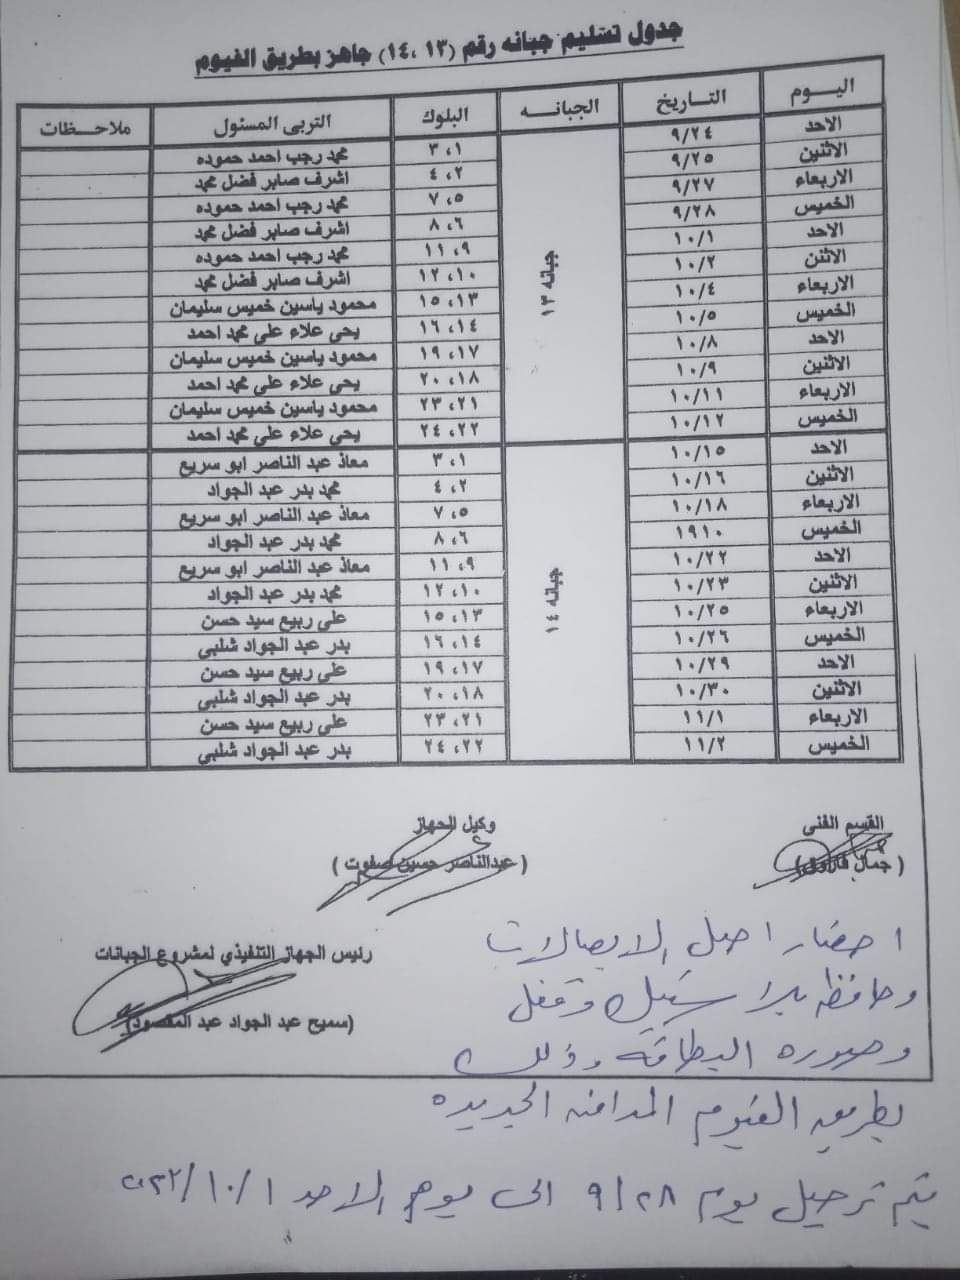 جدول تسليم جبانه رقم (١٣ ،١٤) جاهز بطريق الفيوم
اليـــوم التـاريخ الجبانــه البلوك التربى المسئول ملاحـظات
الاحد ٩/٢٤ جبانه ١٣ ١، ٣ محمد رجب احمد حموده
الاثنين ٩/٢٥ ٢، ٤ اشرف صابر فضل محمد
الاربعاء ٩/٢٧ ٥، ٧ محمد رجب احمد حموده
الخميس ٩/٢٨ ٦، ٨ اشرف صابر فضل محمد
الاحد ١٠/١ ٩، ١١ محمد رجب احمد حموده
الاثنن ١٠/٢ ١٠، ١٢ اشرف صابر فضل محمد
الاربعاء ١٠/٤ ١٣، ١٥ محمود ياسين خميس سليمان
الخميس ١٠/٥ ١٤، ١٦ يحى علاء على محمد احمد
الاحد ١٠/٨ ١٧، ١٩ محمود ياسين خميس سليمان
الاثنين ١٠/٩ ١٨، ٢٠ يحى علاء على محمد احمد
الاربعاء ١٠/١١ ٢١، ٢٣ محمود ياسين خميس سليمان
الخميس ١٠/١٢ ٢٢، ٢٤ يحى علاء على محمد احمد
الاحد ١٠/١٥ جبانه ١٤ ١، ٣ معاذ عبد الناصر ابو سريع
الاثنين ١٠/١٦ ٢، ٤ محمد بدر عبد الجواد
الاربعاء ١٠/١٨ ٥، ٧ معاذ عبد الناصر ابو سريع
الخميس ١٩١٠ ٦، ٨ محمد بدر عبد الجواد
الاحد ١٠/٢٢ ٩، ١١ معاذ عبد الناصر ابو سريع
الاثنين ١٠/٢٣ ١٠، ١٢ محمد بدر عبد الجواد
الاربعاء ١٠/٢٥ ١٣، ١٥ على ربيع سيد حسن
الخميس ١٠/٢٦ ١٤، ١٦ بدر عبد الجواد شلبى
الاحد ١٠/٢٩ ١٧، ١٩ على ربيع سيد حسن
الاثنين ١٠/٣٠ ١٨، ٢٠ بدر عبد الجواد شلبى
الاربعاء ١١/١ ٢١، ٢٣ على ربيع سيد حسن
الخميس ١١/٢ ٢٢، ٢٤ بدر عبد الجواد شلبى
القسم الفنى وكيل الجهاز
( جمال فاروق) ( عبدالناصر حسين صفوت )
رئيس الجهاز التنفيذي لمشروع الجبانات
(سميح عبد الجواد عبد المقصود)
احضار اصل الايصالات
وحافظه بلاستيك وقفل
وصوره البطاقه وذلك
بطريق الفيوم المدافن الجديده
يتم ترحيل يوم ٩/٢٨ الى يوم الاحد ١/١٠/